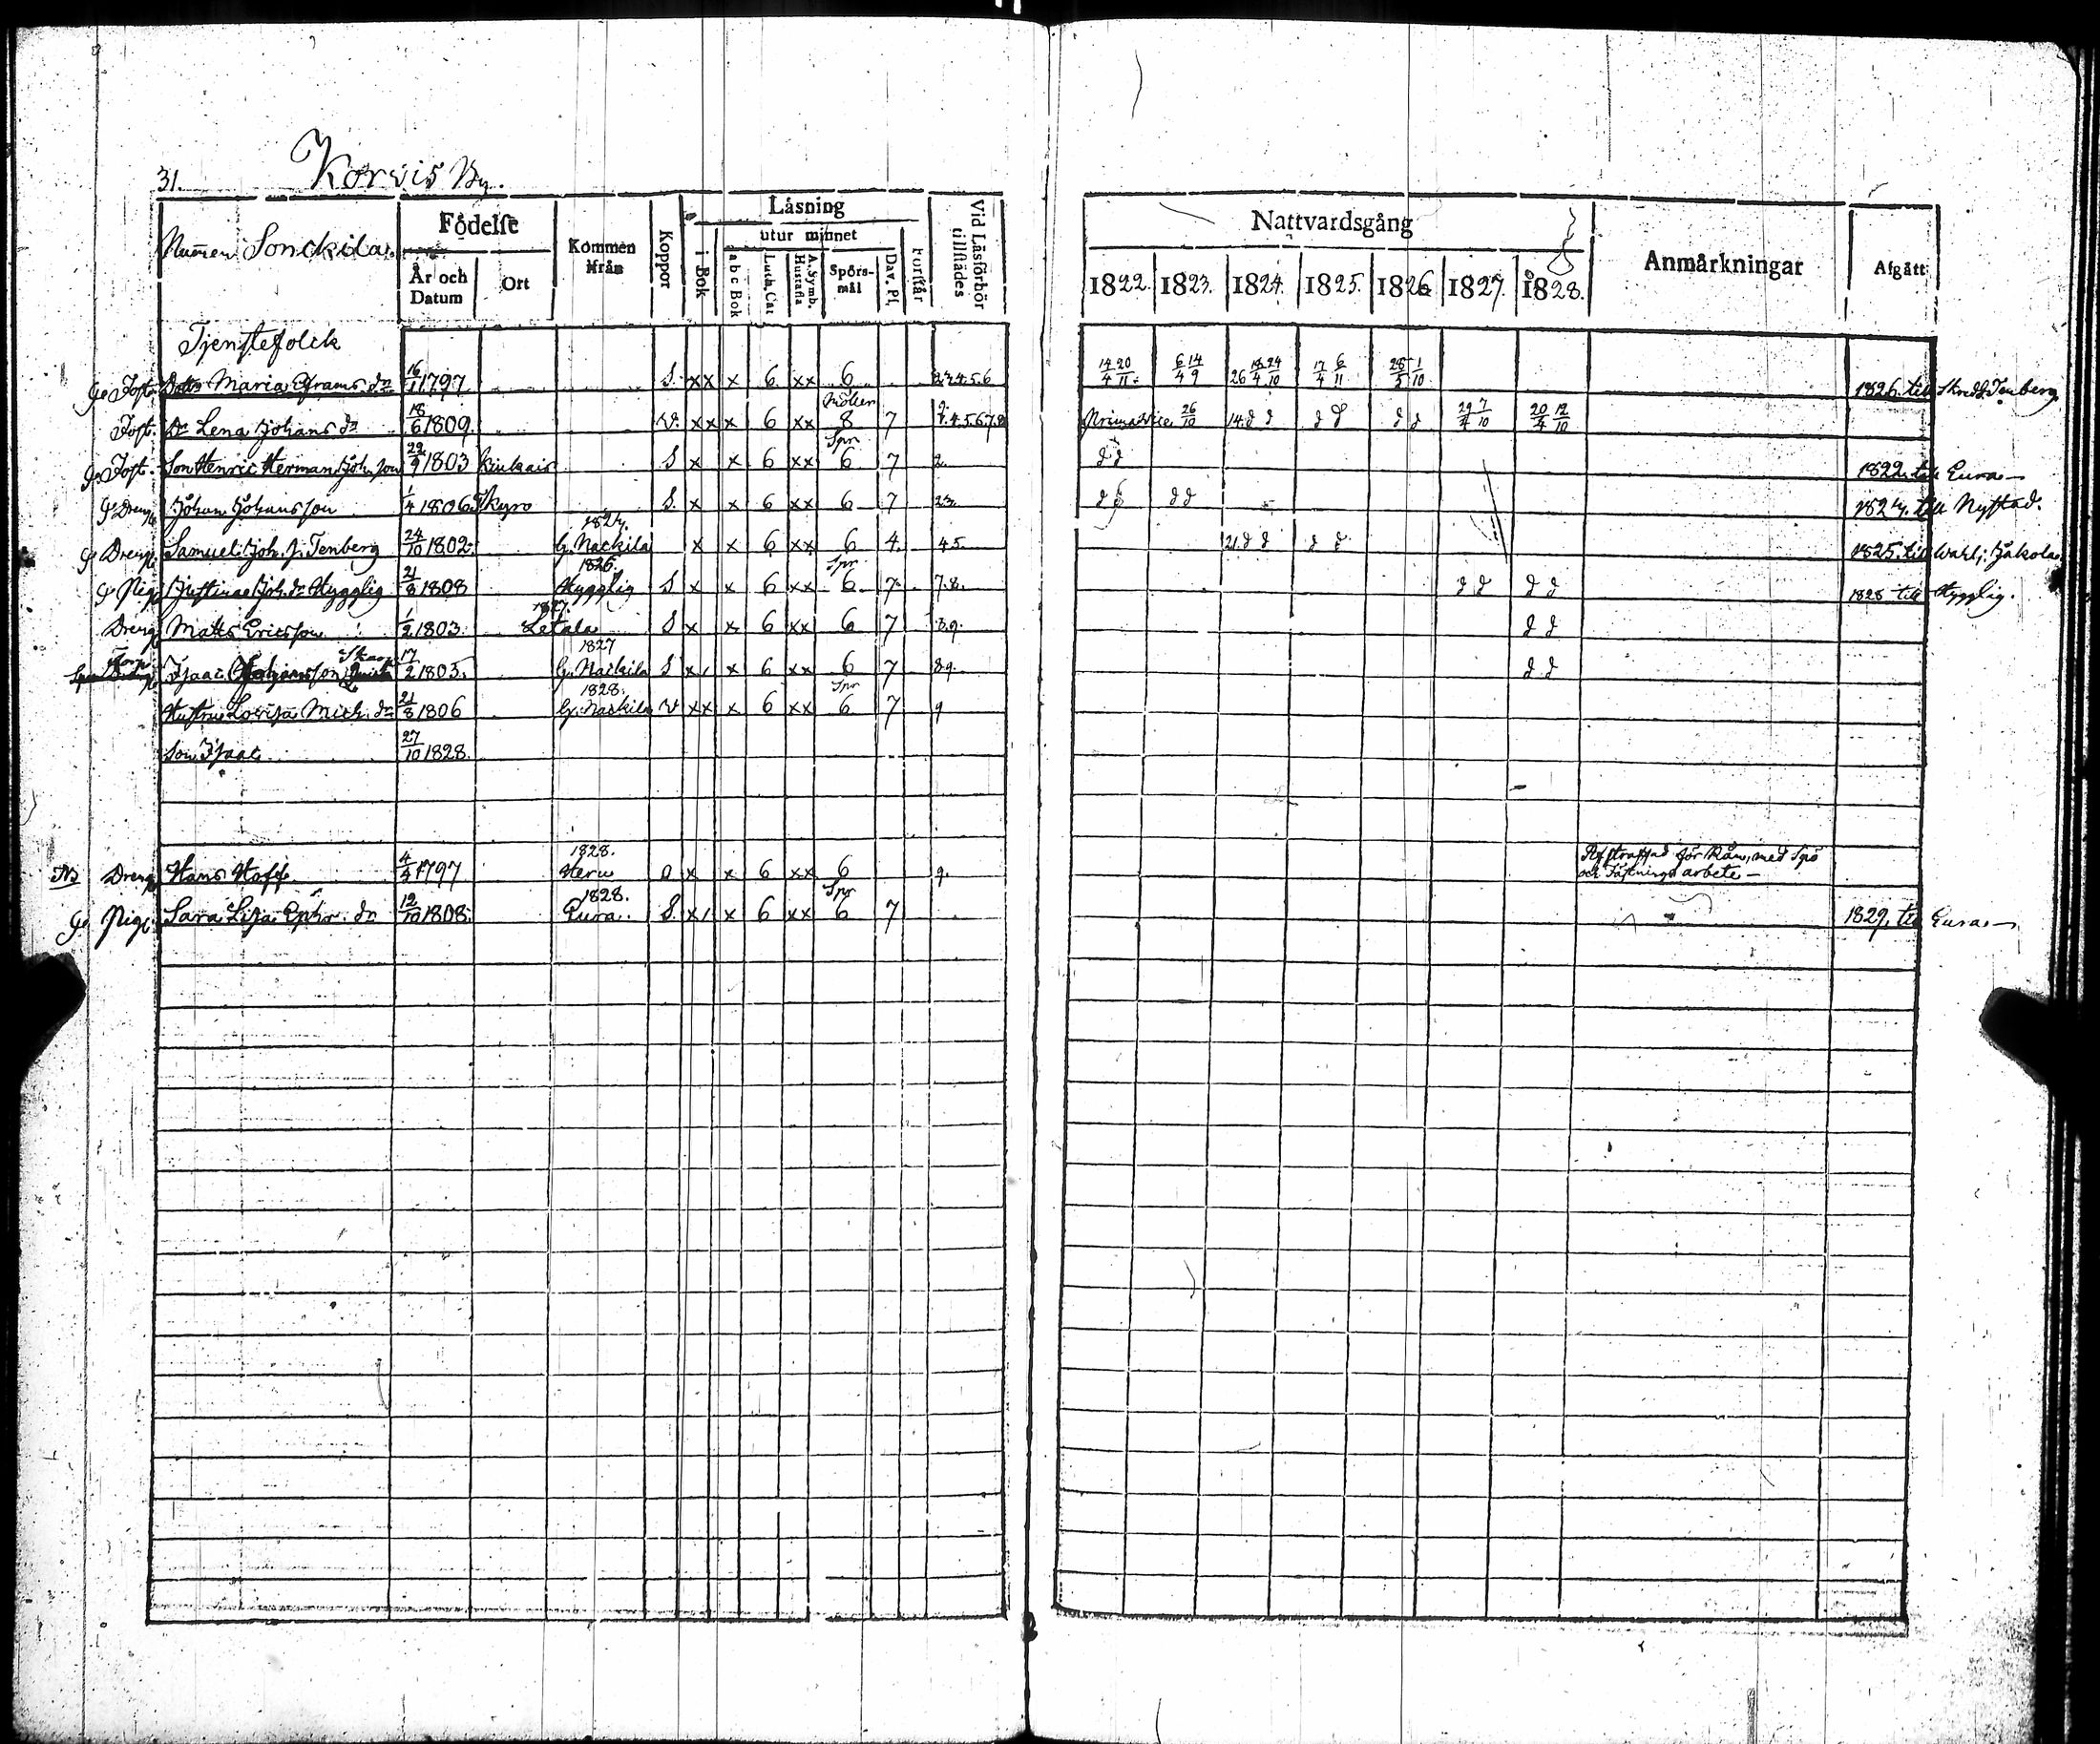 31. Korvis By.
Numen Sonckila.
Födelse
År och Datum
Ort
Kommen ifrån
Koppor
Låsning
i Bok
utur minnet
a b c Bok
Luth. Cat
A. Symb. Hustafla
Spörsmål
Dav. Ps.
Forstår
Vid Låsförhör tillstädes
Nattvardsgång
1822. 1823. 1824. 1825. 1826 1827. 1828.
Anmårkningar
Afgått
Tjenstefolck
Maria Eframs dr 16/1 1797 S. xx x 6 xx 6 2.3.4.5.6 14/4 20/11 6/4 14/9 26 18/4 24/10 17/4 6/11 28/5 1/10 1826. till
Dr Lena Johans dr 18/6 1809 v. xx x 6 xx 8 7 4.5.6.7.8 26/10 14. d d d d d d 29/4 7/10 20/4 12/10
Son Henric Herman Joh. son 22/9 1803 Kiukais S x x 6 xx Spr 6 7 2. d d 1822. till Eura
g Dreng Johan Johansson 1/4 1806 Kyro S. x x 6 xx 6 7 2.3. d d d d 1824. till Nystad.
g Dreng Samuel Joh. s. Tenberg 24/10 1802 1824. G. Nackila x x 6 xx 6 4. 4 5. 21. d d d d 1825. till
g Pig. Justina Joh. dr Hygglig 21/8 1808 1826. Hygglig S x x 6 xx Spr 6 7 7.8. d d d d 1828 till Hygglig.
Dreng Matts Ericsson 1/2 1803 1827. Letala S x x 6 xx 6 7 8.9. d d
Isaac 17/2 1803. 1827 G. Nackila S x x 6 xx 6 7 8.9. d d
Hustru Lovisa Mich. dr 21/8 1806 1828. G. Nackila v xx x 6 xx Spr 6 7 9
Son Isaac 27/10 1828.
NB Dreng Hans Hoff 4/4 1797 1828. x x 6 xx 6 9. Afstraffad för Rån, med Spö
och Fästnings arbete –
g Pig. Sara Lisa Ephr. dr 12/10 1808. 1828. Eura. S. x x 6 xx Spr 6 7 1829. till Eura